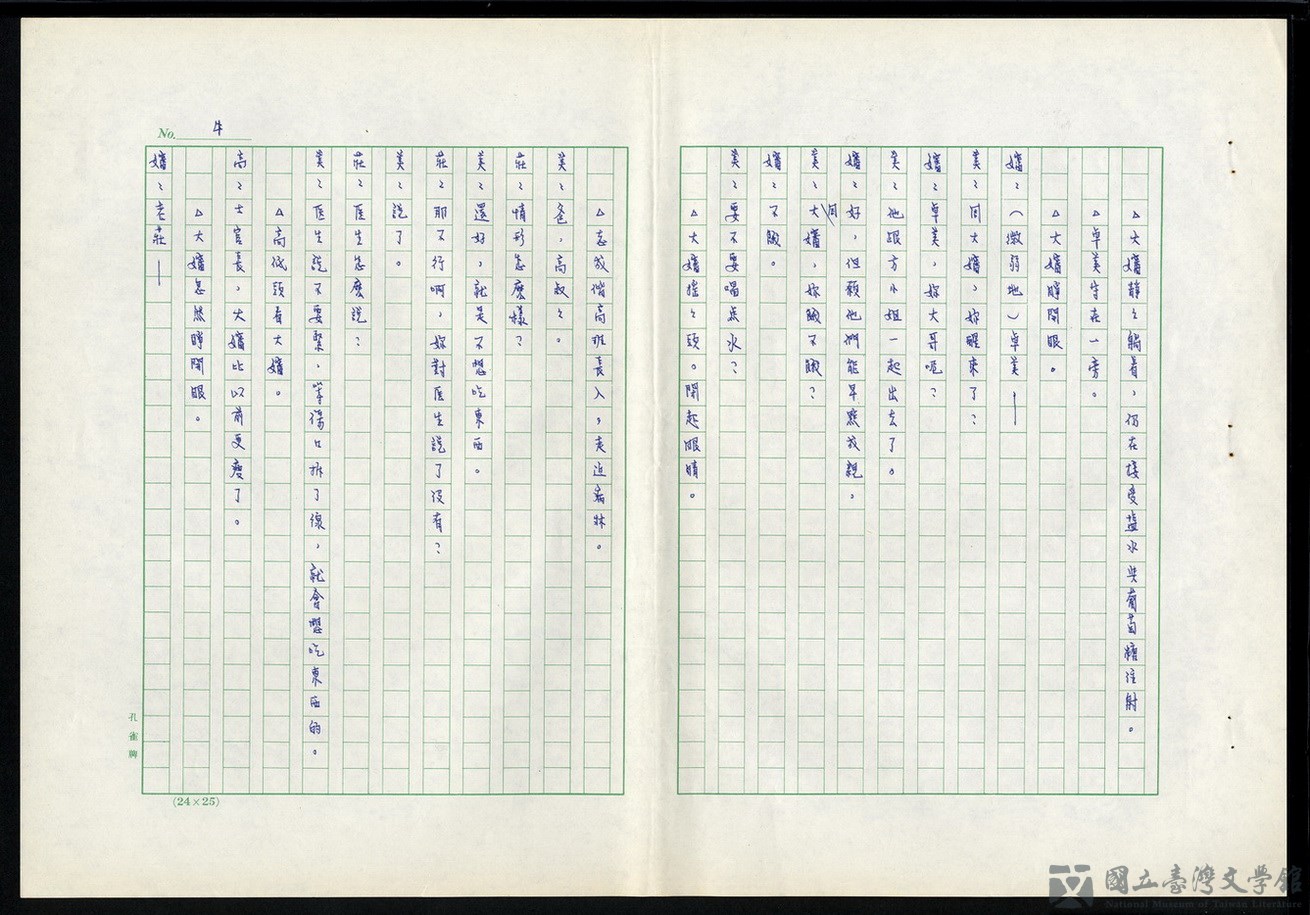 △大嬸靜々躺着，仍在接受塩水與葡萄糖注射。
△卓美守在一旁。
△大嬸睜開眼。
嬸：（微弱地）卓美——
美：周大嬸，妳醒來了？
嬸：卓美，妳大哥呢？
美：他跟方小姐一起出去了。
嬸：好，但願他們能早點成親。
美：周大嬸，妳餓不餓？
嬸：不餓。
美：要不要喝点水？
△大嬸搖々頭。閉起眼睛。
△志成偕高班長入，走近病牀。
美：爸，高叔々。
莊：情形怎麼樣？
美：還好，就是不想吃東西。
莊：那不行啊，妳對医生說了沒有？
美：說了。
莊：医生怎麼說？
美：医生說不要緊，等傷口拆了線，就會想吃東西的。
△高低頭看大嬸。
高：士官長，大嬸比以前更瘦了。
△大嬸忽然睜開眼。
嬸：老莊——
No. 4
孔雀牌
(24×25)
國立臺灣文學館
National Museum of Taiwan Literature